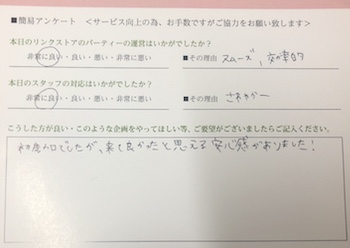 ■簡易アンケート <サービス向上の為、お手数ですがご協力をお願い致します>
本日のリンクストアのパーティーの運営はいかがでしたか?
非常に良い・良い・悪い・非常に悪い ■その理由 スムーズ、効率的
本日のスタッフの対応はいかがでしたか?
非常に良い・良い・悪い・非常に悪い ■その理由 さわやか
こうした方が良い・このような企画をやってほしい等、ご要望がございましたらご記入ください。
初参加でしたが、来て良かったと思える安心感がありました!